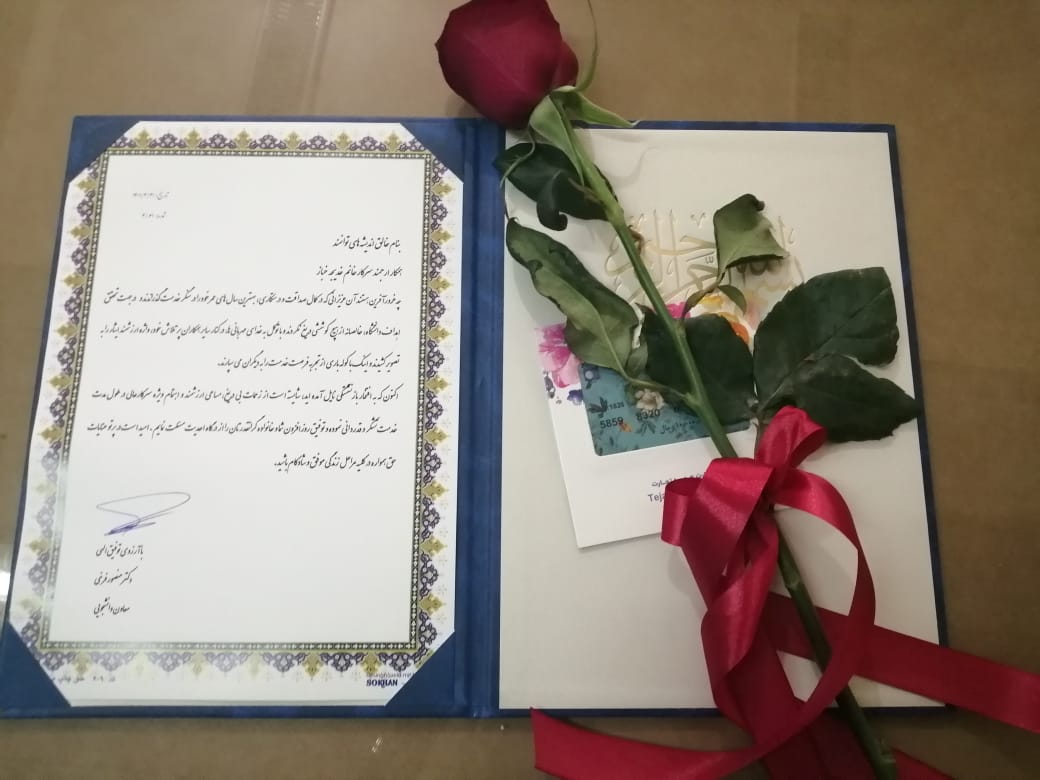 بنام خالق اندیشه های توانمند
همکار ارجمند سرکار خانم خدیجه خباز
چه غرور آفرین هستند آن عزیزانی که در کمال صداقت و درستکاری، بهترین سال های عمر خود را در سنگر خدمت گذرانده و در جهت تحقق
اهداف دانشگاه، خالصانه از هیچ کوششی دریغ نکردند و با توکل به خدای مهربانی ها، در کنار سایر همکاران پر تلاش خود، واژه ارزشمند ایثار را به
تصویر کشیدند و اینک با کوله باری از تجربه فرصت خدمت را به دیگران می سپارند.
اکنون که به افتخار بازنشستگی نایل آمده اید، شایسته است از زحمات بی دریغ، مساعی ارزشمند و اهتمام ویژه سرکارعالی در طول مدت
خدمت تشکر و قدردانی نموده و توفیق روز افزون شما و خانواده گرانقدرتان را از درگاه احدیت مسئلت نمایم. امید است در پرتو عنایات
حق همواره در کلیه مراحل زندگی موفق و شادکام باشید.
با آرزوی توفیق الهی
دکتر منصور فرخی
معاون دانشجویی
SOKHAN
5859
8320
Teja